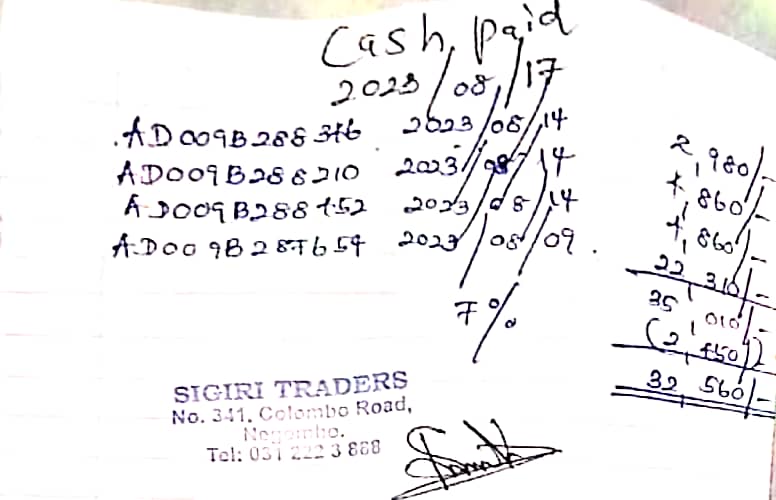 Cash paid
2023/08/17
AD009B288346 2023/08/14 2,980/-
AD009B288210 2023/08/14 4,860/-
AD009B288452 2023/08/14 4,860/-
AD009B287654 2023/08/09. 22,310/-
35,010/-
7% (2,450)
32,560/-
SIGIRI TRADERS
No. 341, Colombo Road,
Negombo.
Tel: 031 222 3 868